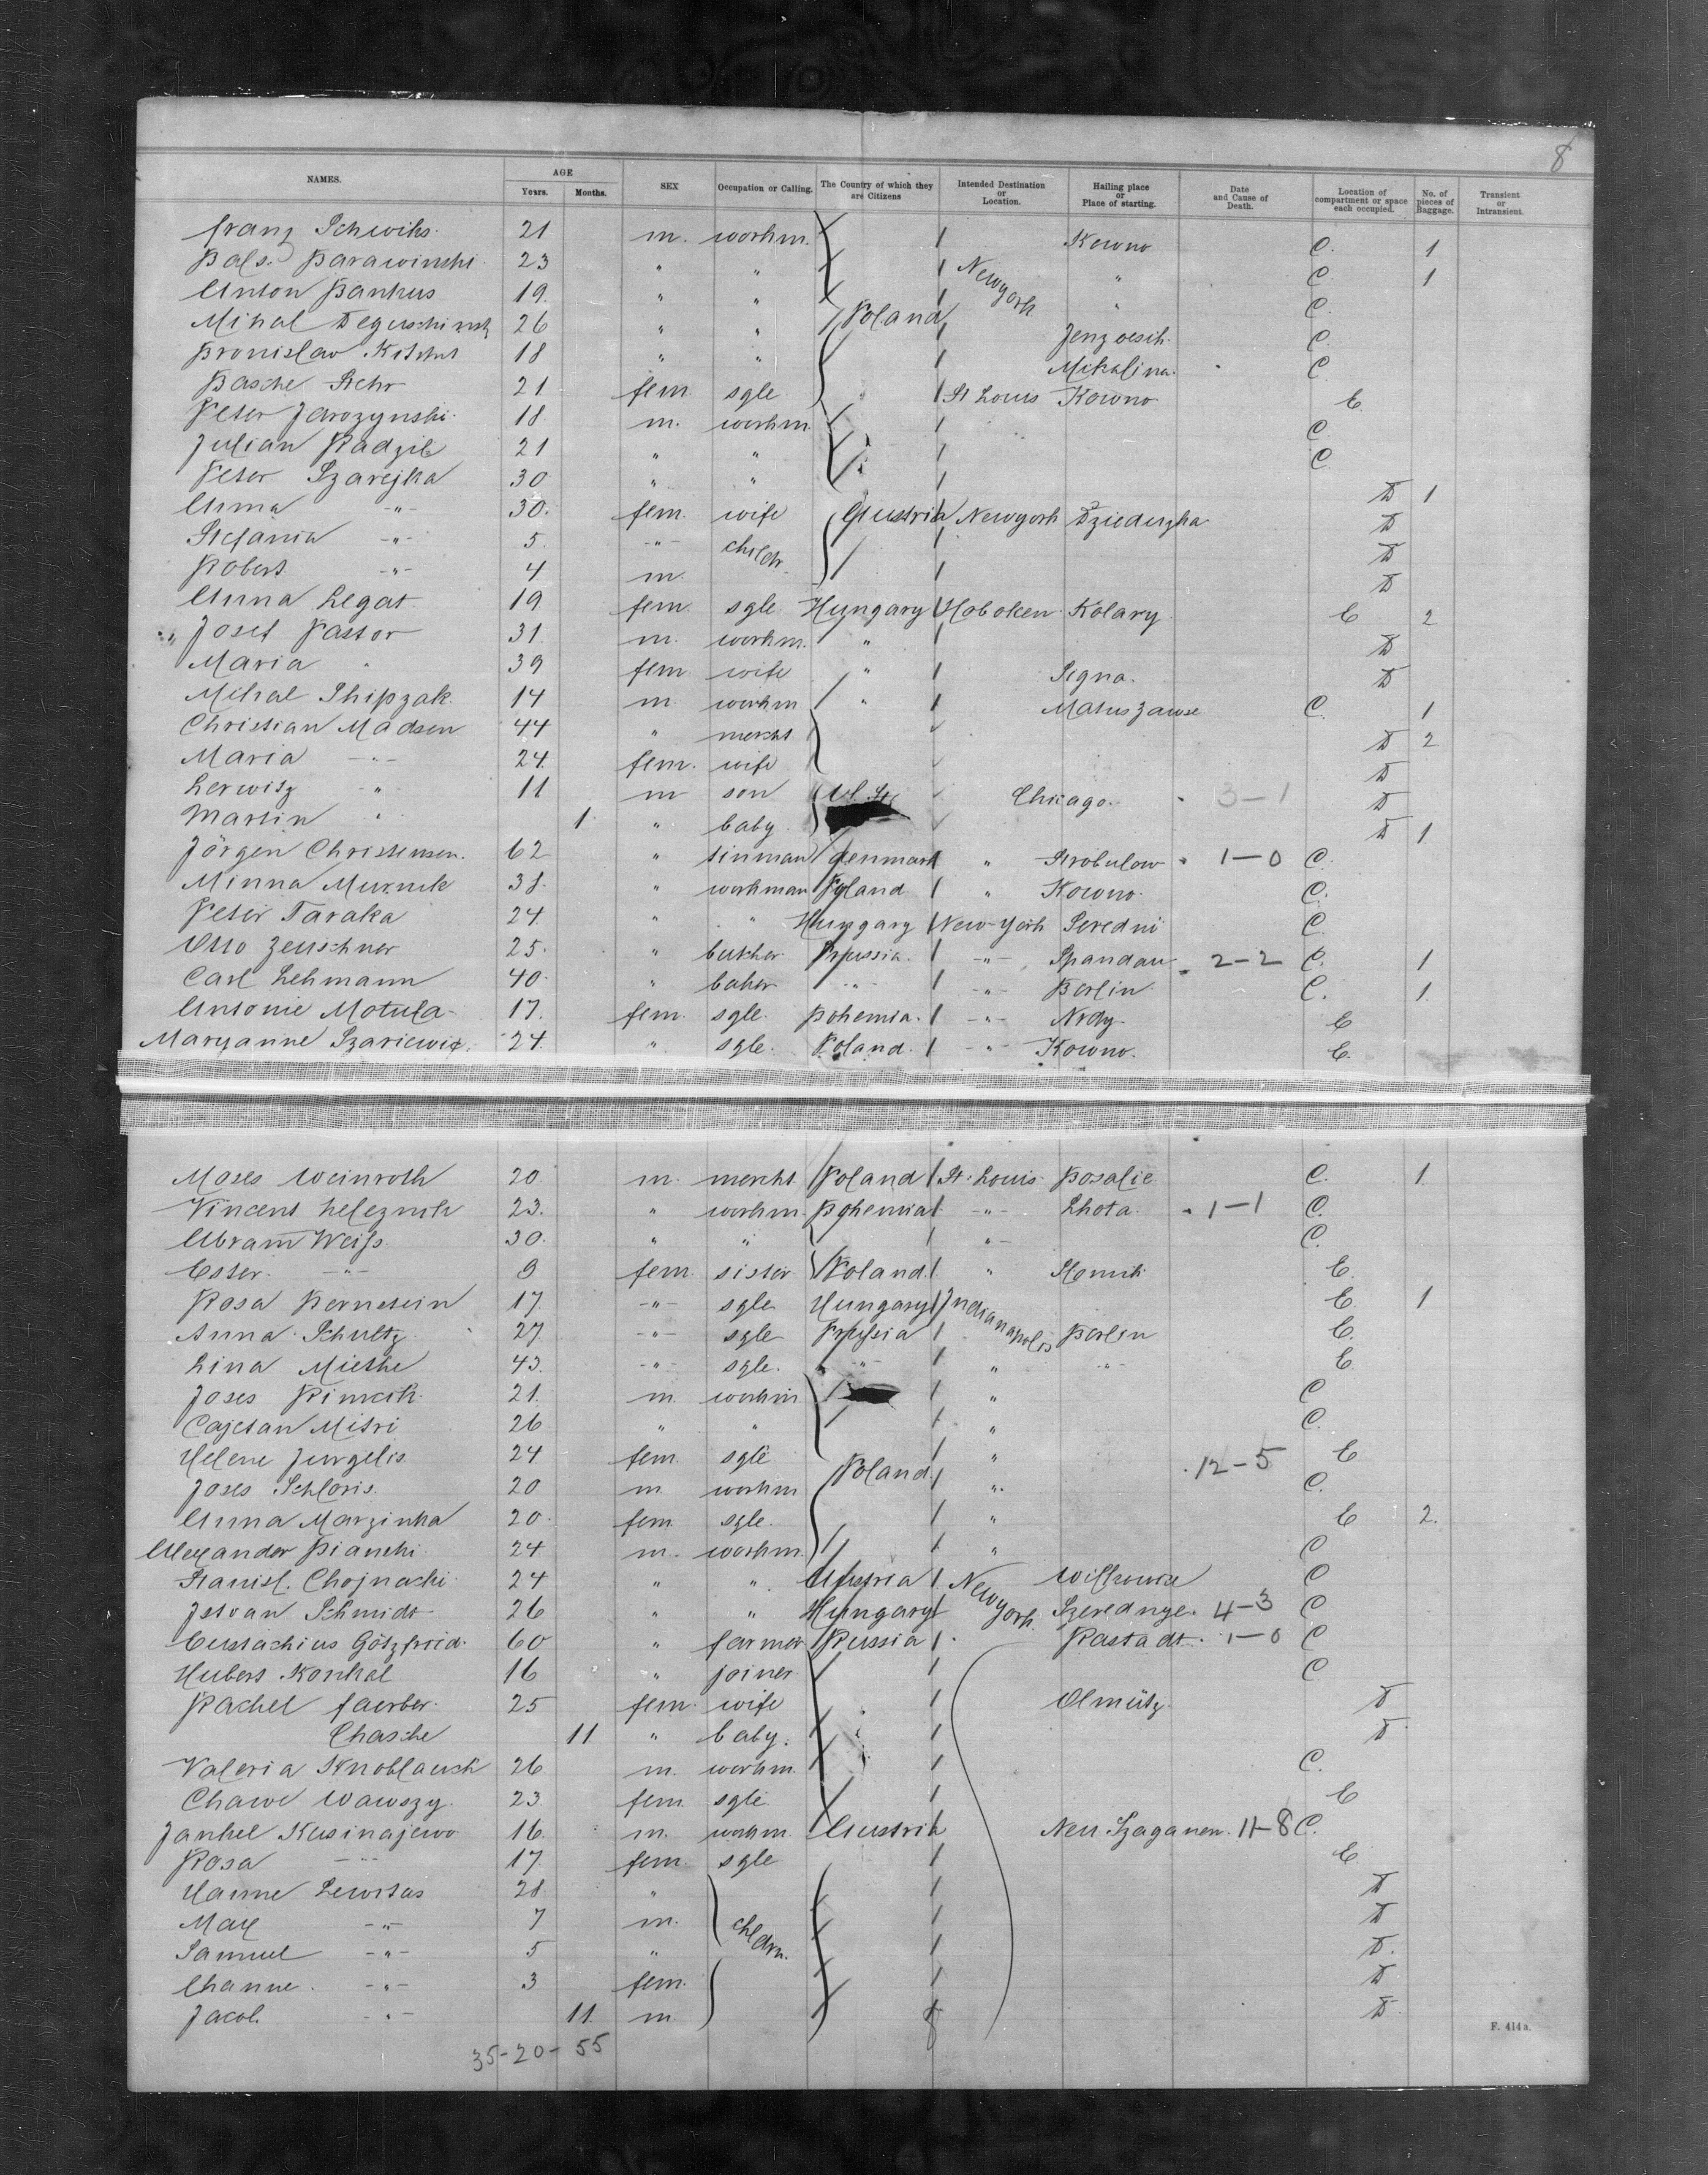 8
NAMES. AGE Years. Months. SEX Occupation or Calling. The Country of which they are Citizens Intended Destination or Location. Hailing place or Place of starting. Date and Cause of Death. Location of compartment or space each occupied. No. of pieces of Baggage. Transient or Intransient.
Franz Schwiks. 21 m. workm. Kowno C. 1
Bals. Barawinski 23 " " Newyork " C 1
Anton Bankus 19. " " " C.
Mihal Deguschinsk 26 " " Poland Jenzoesih. C.
Bronislaw 18 " " Mikalina. C
Basche Stehr 21 fem. sgle St Louis Kowno E
Peter Jarozynski. 18 m. workm. C
Julian Radzil 21 " " C
Peter Szarejka 30 " " D 1
Anna -"- 30. fem. wife Austria Newyork Dzieduzka D
Stefania -"- 5. -"- childr D
Robert -"- 4 m. D
Anna Legat 19 fem. sgle Hungary Hoboken Kolary E 2
Josef Pastor 31. m. workm. " D
Maria " 39 fem. wife " Signa. D
Mihal Shipzak. 14 m workm " Matuszawse C. 1
Christian Madsen 44 " mercht D 2
Maria -"- 24. fem. wife D
Lerwitz " 11 m son U. St. Chicago. 3-1 D
Martin " 1 " baby D 1
Jörgen Christensen. 62 " tinman denmark " Strobulow 1-0 C.
Minna Muznik 38. " workman Poland " Kowno. C.
Peter Taraka 24. " " Hungary New-York Seredni C.
Otto Zeuschner 25. " butcher Prussia. -"- Spandau 2-2 C. 1
Carl Lehmann 40. " baker -"- -"- Berlin. C. 1.
Antonie Motula 17. fem. sgle. Bohemia. -"- Nrdy. E
Maryanne Szariewic. 24. " sgle. Poland. -"- Kowno. E.
Moses Weinroth 20. m. mercht Poland St. Louis Bosalie C. 1
Vincent Leleznik 23. " workm. Bohemia -"- Lhota. 1-1 C.
Abram Weiss. 30. " " " C.
Ester. -"- 9 fem. sister Poland. " Slomik E.
Rosa Bernstein 17. -"- sgle Hungary Indianapolis E. 1
Anna Schultz 27. -"- sgle Prussia Berlin E.
Lina Miethe 43. -"- sgle. -"- " -"- E
Joses Rimeik. 21. m. workm " C
Cajetan Mitri 26 " " " C.
Helene Jurgelis. 24 fem. sgle " 12-5 E
Joses Schloris. 20 m. workm Poland. " C.
Anna Marzinka 20. fem. sgle. " E 2.
Alexander Bianski 24 m. workm. " C
Stanisl. Chojnacki 24 " " Austria Newyork C
Istvan Schmidt 26 " " Hungary Szerednye. 4-3 C
Eustachius Götzfried. 60 " farmer Russia Rastadt. 1-0 C
Hubert Konkal 16 " joiner C
Rachel Faerber. 25 fem. wife Olmütz. D
Chasche 11 " baby. D
Valeria Knoblauch 26 m. workm. C.
Chawe Wawszy. 23. fem. sgle E
Jankel Kusinajewo 16. m. workm. Austria Neu Szaganen. 11-8 C.
Rosa -"- 17. fem. sgle E
Hanne Lewitas 28. " D
Max -"- 7 m. childrn. D
Samuel -"- 5 " D.
Channe. -"- 3 fem. D
Jacob. -"- 11. m. D.
35-20-55
F. 414 a.